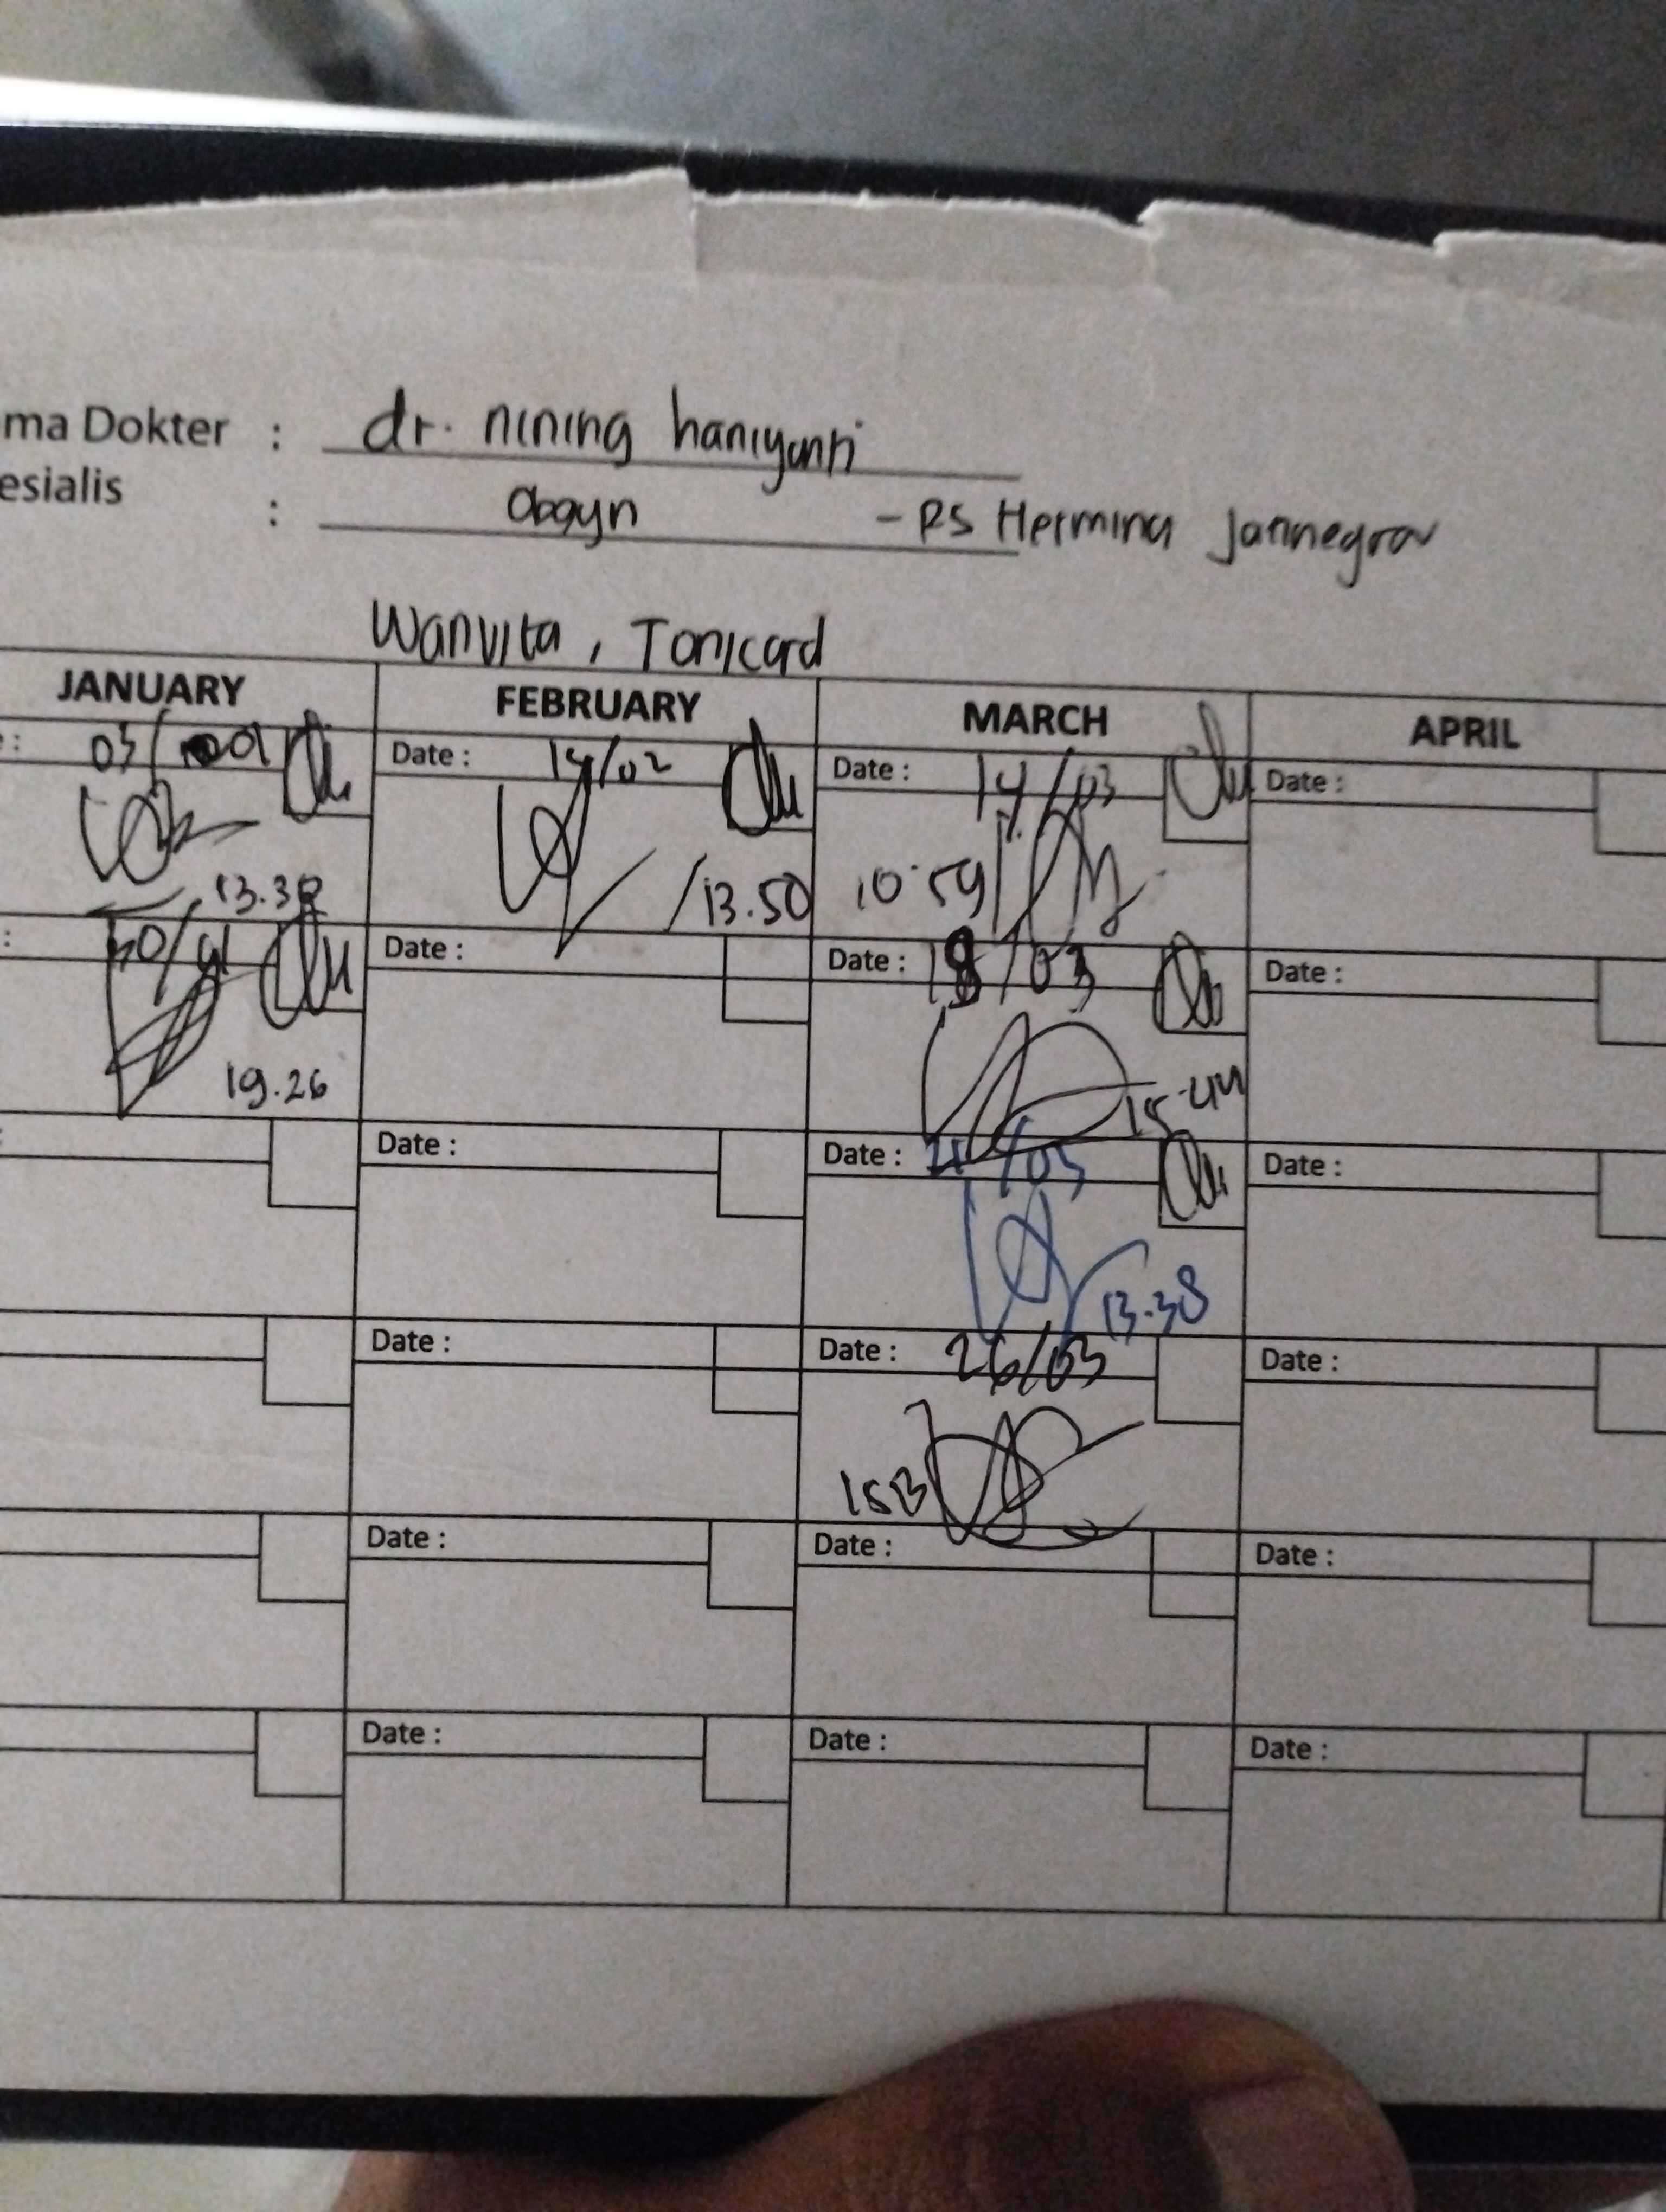 ma Dokter : dr. nining haniyanti
esialis : Obgyn - RS Hermina Jatinegara
Wanvita, Tonicard
JANUARY FEBRUARY MARCH APRIL
: 03/01 Date : 14/02 Date : 14/03 Date :
13.38 /13.50 10.59
: 30/01 Date : Date : 18/03 Date :
19.26 15.44
: Date : Date : 21/03 Date :
13.38
Date : Date : 26/03 Date :
Date : Date : Date :
Date : Date : Date :